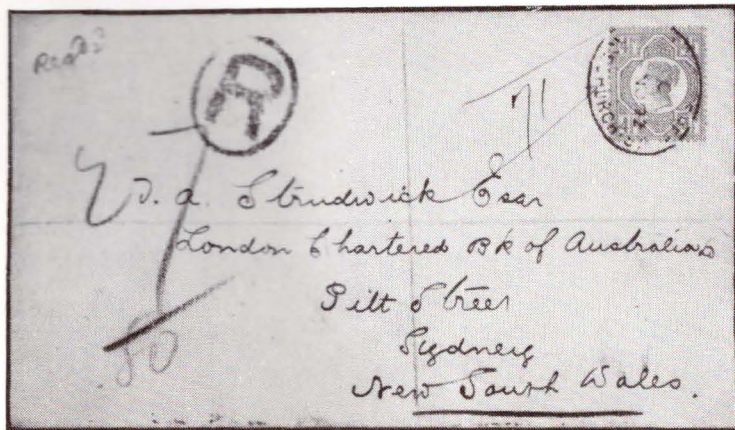 Regd
R
71
W. A. Strudwick Esqr
London Chartered Bk of Australia
Pitt Street
Sydney
New South Wales.
80